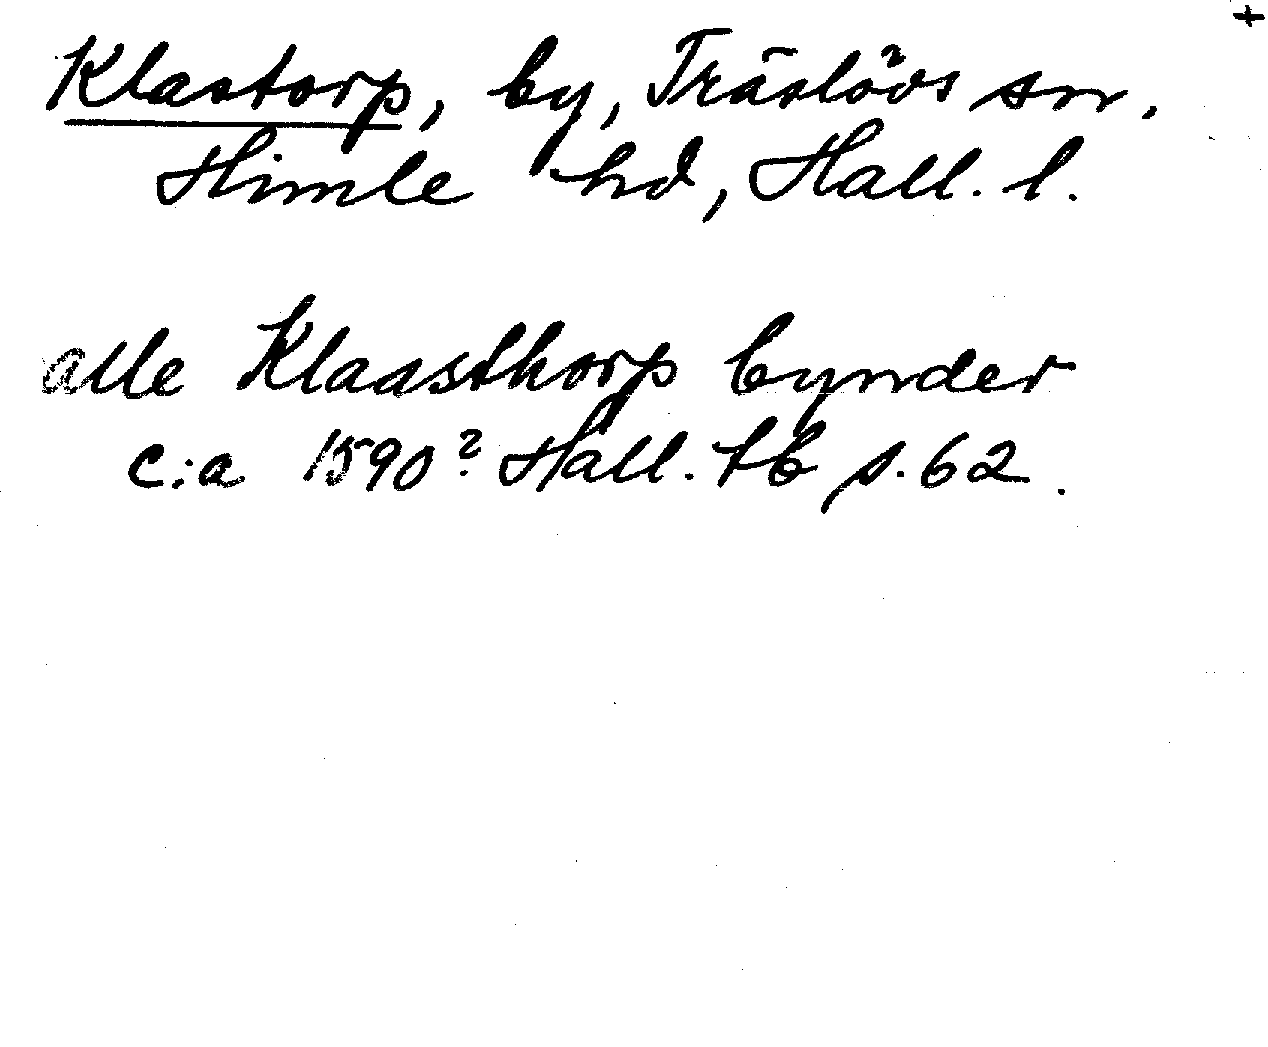 +
Klastorp, by, Träslövs sn.
Himle hd, Hall. l.
alle Klaasthorp bynder
c:a 1590? Hall. tb s. 62.